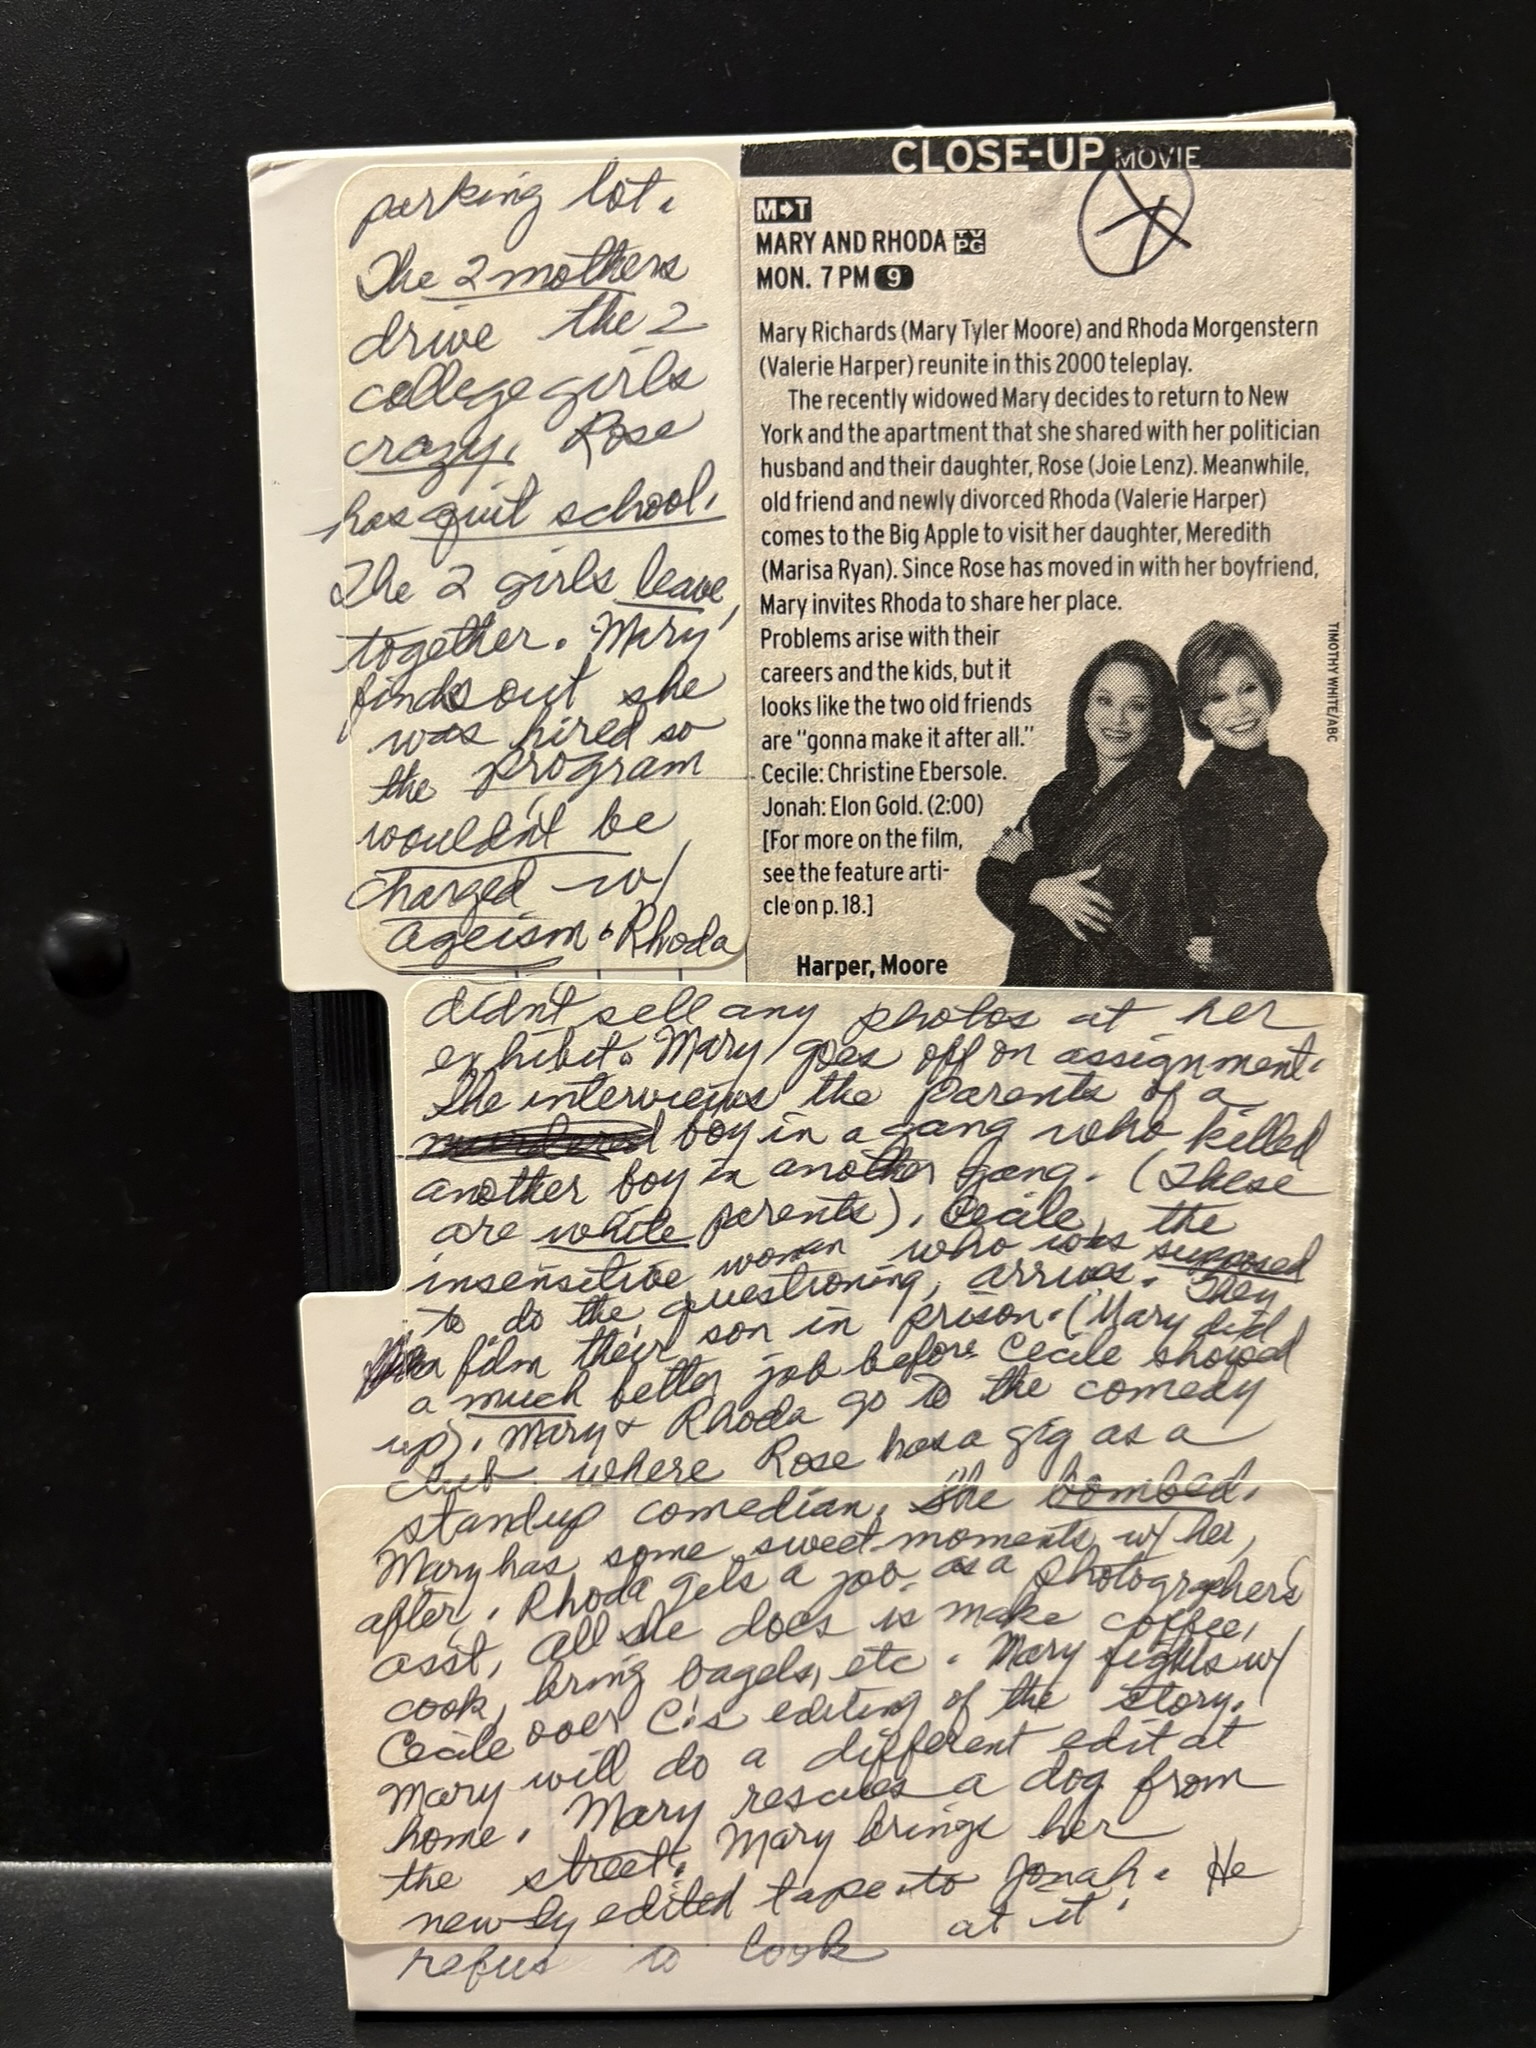 CLOSE-UP MOVIE
M→T
MARY AND RHODA TV PG
MON. 7 PM 9
Mary Richards (Mary Tyler Moore) and Rhoda Morgenstern
(Valerie Harper) reunite in this 2000 teleplay.
The recently widowed Mary decides to return to New
York and the apartment that she shared with her politician
husband and their daughter, Rose (Joie Lenz). Meanwhile,
old friend and newly divorced Rhoda (Valerie Harper)
comes to the Big Apple to visit her daughter, Meredith
(Marisa Ryan). Since Rose has moved in with her boyfriend,
Mary invites Rhoda to share her place.
Problems arise with their
careers and the kids, but it
looks like the two old friends
are "gonna make it after all."
Cecile: Christine Ebersole.
Jonah: Elon Gold. (2:00)
[For more on the film,
see the feature arti-
cle on p. 18.]
Harper, Moore
TIMOTHY WHITE/ABC
parking lot.
The 2 mothers
drive the 2
college girls
crazy. Rose
has quit school.
The 2 girls leave,
together. Mary
finds out she
was hired so
the program
wouldn't be
charged w/
ageism. Rhoda
didn't sell any photos at her
exhibit. Mary goes off on assignment.
She interviews the parents of a
murdered boy in a gang who killed
another boy in another gang. (These
are white parents). Cecile, the
insensitive woman who was supposed
to do the questioning, arrives. They
film their son in prison. (Mary did
a much better job before Cecile showed
up). Mary & Rhoda go to the comedy
club where Rose has a gig as a
standup comedian. She bombed.
Mary has some sweet moments w/ her,
after. Rhoda gets a job as a photographer's
asst, all she does is make coffee,
cook, bring bagels, etc. Mary fights w/
Cecile over C.'s editing of the story.
Mary will do a different edit at
home. Mary rescues a dog from
the street. Mary brings her
newly edited tape to Jonah. He
refus to look at it.